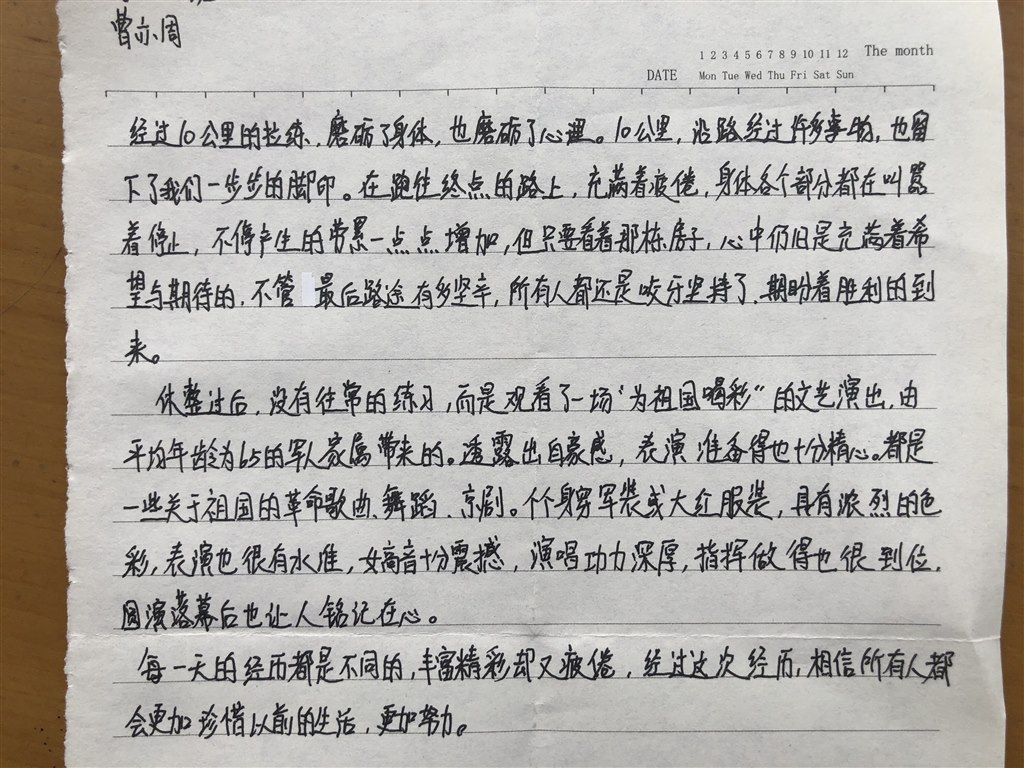 曹亦周
1 2 3 4 5 6 7 8 9 10 11 12 The month
DATE Mon Tue Wed Thu Fri Sat Sun
经过10公里的拉练,磨砺了身体,也磨砺了心理。10公里,沿路经过许多事物,也留
下了我们一步步的脚印。在跑往终点的路上,充满着疲倦,身体各个部分都在叫嚣
着停止,不停产生的劳累一点点增加,但只要看着那栋房子,心中仍旧是充满着希
望与期待的,不管最后路途有多坚辛,所有人都还是咬牙坚持了,期盼着胜利的到
来。
休整过后,没有往常的练习,而是观看了一场“为祖国喝彩”的文艺演出,由
平均年龄为65的军人家属带来的。透露出自豪感,表演准备得也十分精心。都是
一些关于祖国的革命歌曲、舞蹈、京剧。个个身穿军装或大红服装,具有浓烈的色
彩,表演也很有水准,女高音十分震撼,演唱功力深厚,指挥做得也很到位,
圆演落幕后也让人铭记在心。
每一天的经历都是不同的,丰富精彩却又疲倦,经过这次经历,相信所有人都
会更加珍惜以前的生活,更加努力。